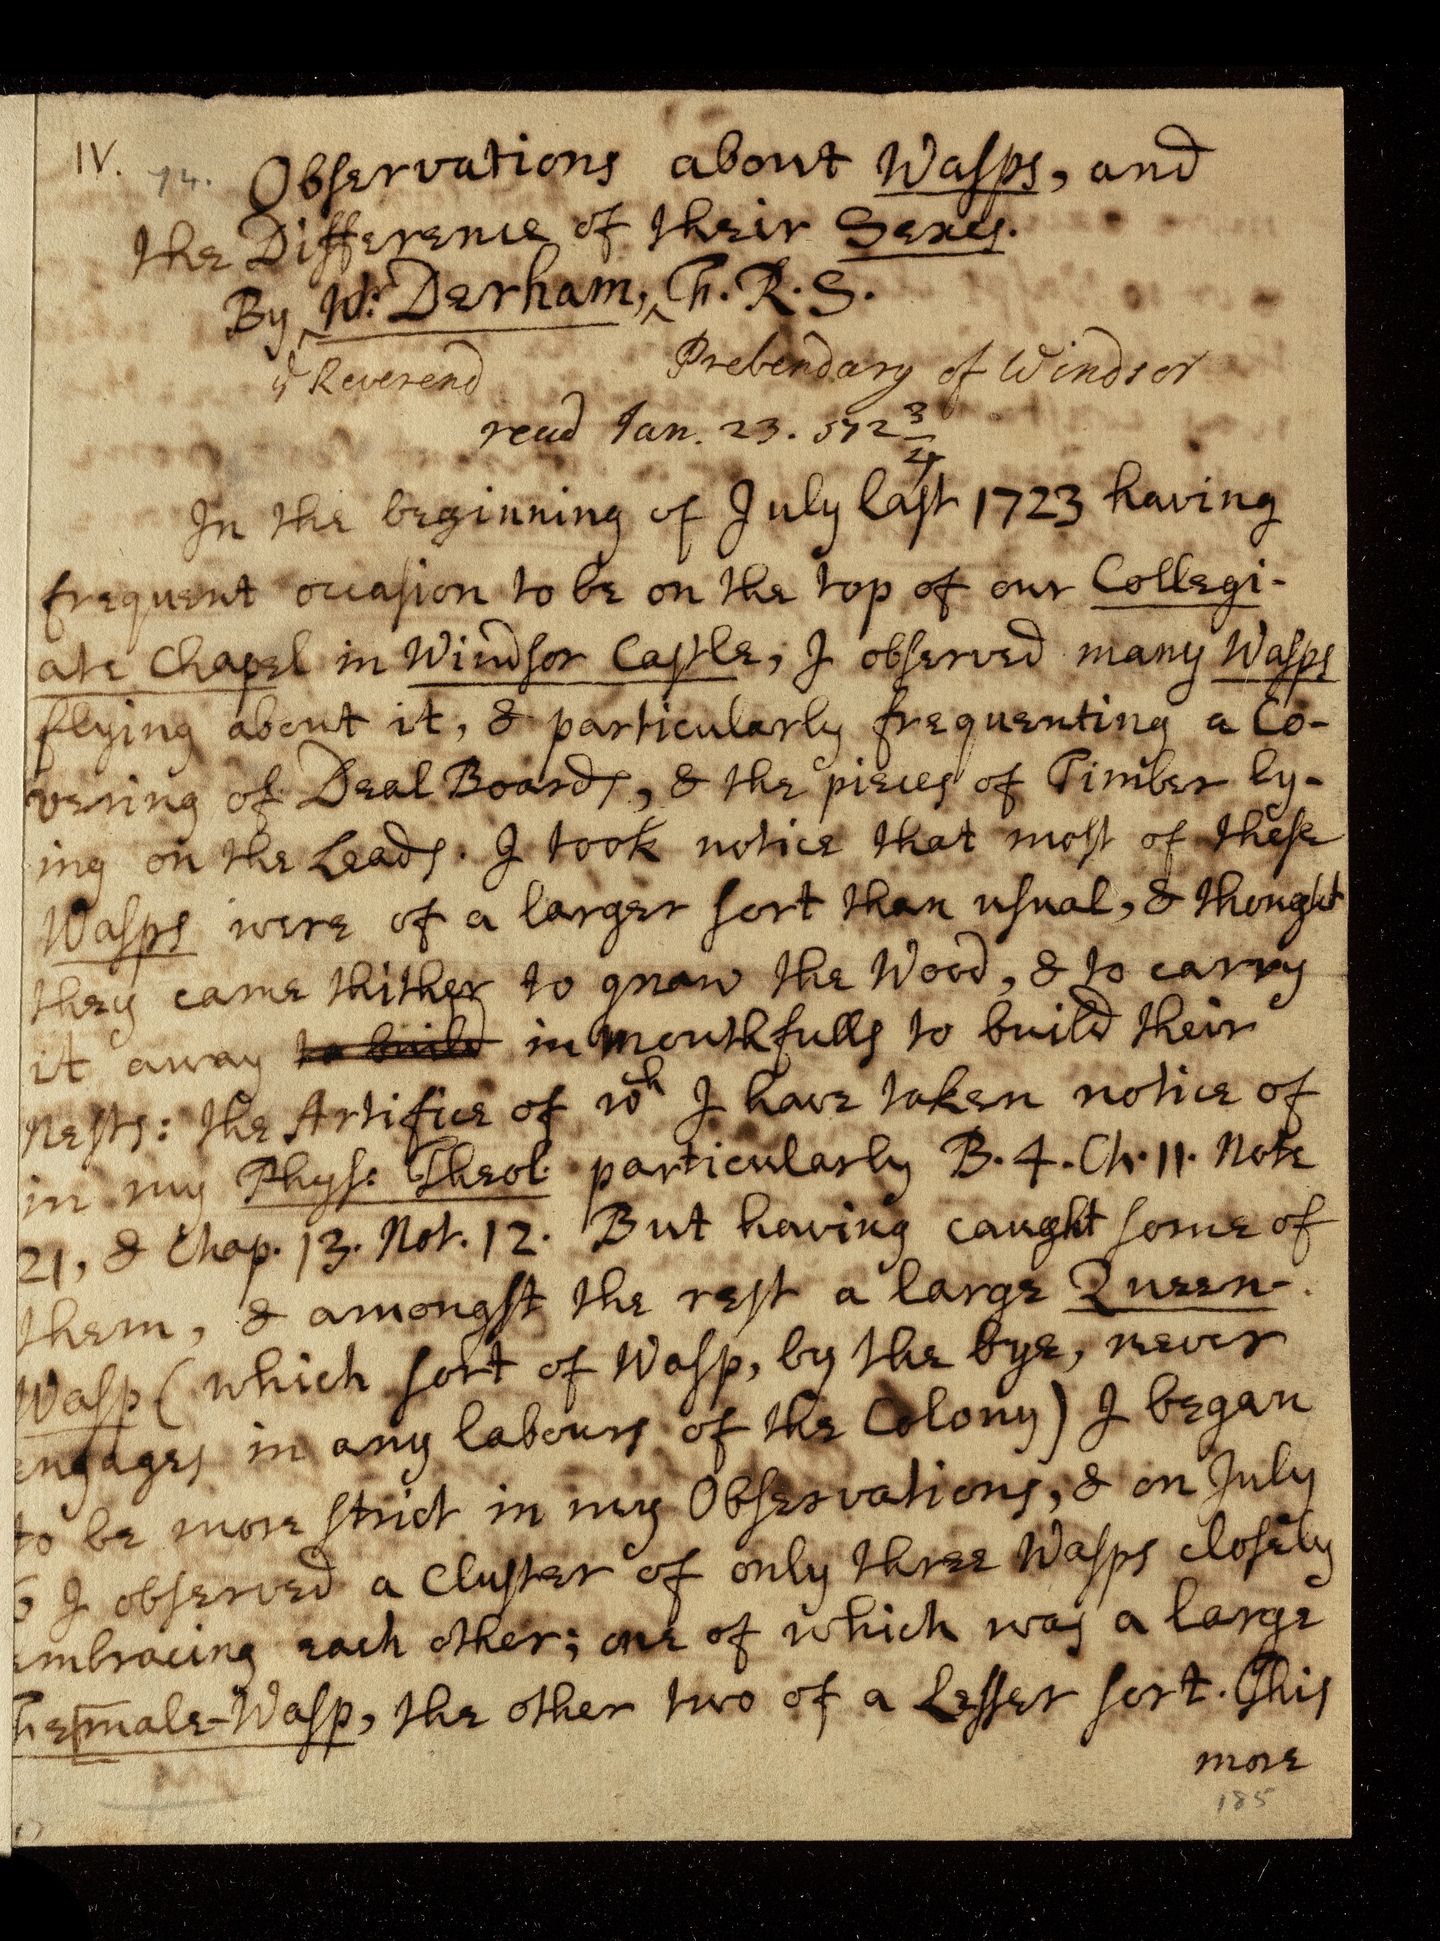 IV. 74. Observations about Wasps, and
the Difference of their Sexes.
By ^ W: Derham, ^ F. R. S.
ye Reverend Prebendary of Windsor
read Jan. 23. 172 3/4
In the beginning of July last 1723 having
frequent occasion to be on the top of our Collegi-
ate Chapel in Windsor Castle, I observed many Wasps
flying about it, & particularly frequenting a Co-
vering of Deal Boards, & the pieces of Timber ly-
ing on the Leads. I took notice that most of these
Wasps were of a larger sort than usual, & thought
they came thither to gnaw the Wood, & to carry
it away to build in mouthfulls to build their
Nests: the Artifice of wch I have taken notice of
in my Phys: Theol. particularly B. 4. Ch. 11. Note
21, & Chap. 13. Not. 12. But having caught some of
them, & amongst the rest a large Queen-
Wasp (which sort of Wasp, by the bye, never
engages in any labours of the Colony) I began
to be more strict in my Observations, & on July
6 I observed a Cluster of only three Wasps closely
embracing each other; one of which was a large
Female-Wasp, the other two of a Lesser sort. This
more
185